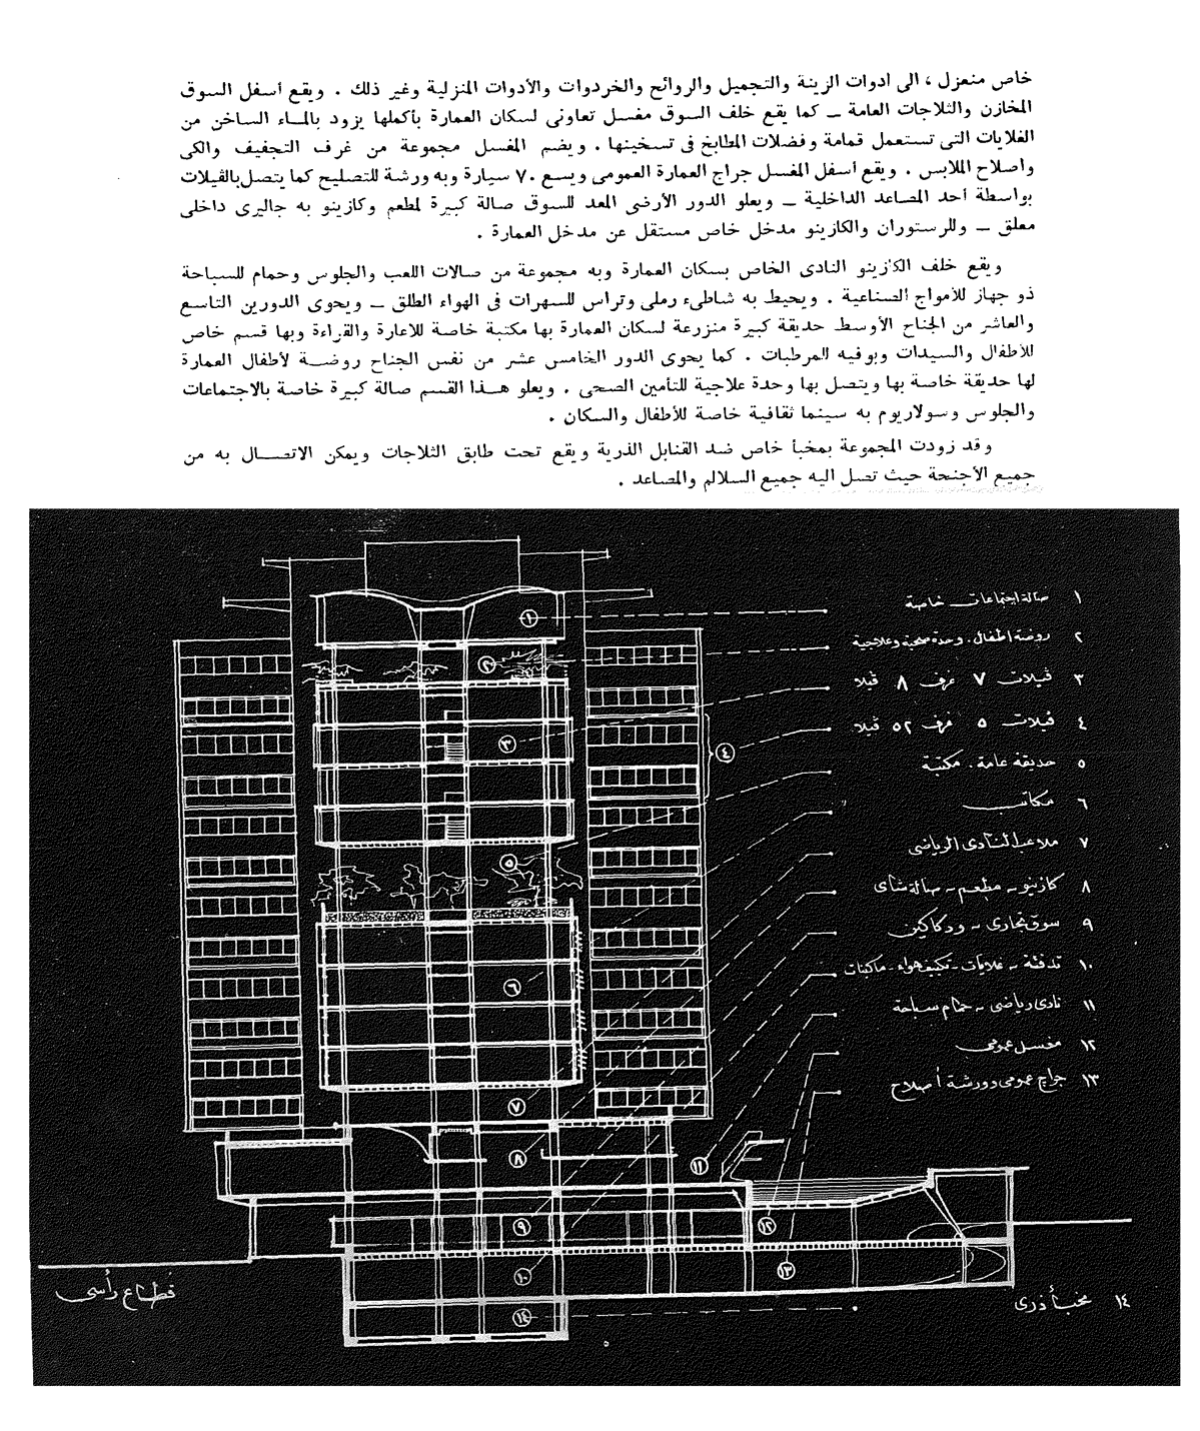 خاص منعزل ، الى ادوات الزينة والتجميل والروائح والخردوات والأدوات المنزلية وغير ذلك . ويقع أسفل السوق
المخازن والثلاجات العامة ــ كما يقع خلف السوق مغسل تعاونى لسكان العمارة بأكملها يزود بالمــاء الساخن من
الغلايات التى تستعمل قمامة وفضلات المطابخ فى تسخينها . ويضم المغسل مجموعة من غرف التجفيف والكى
واصلاح الملابس . ويقع أسفل المغسل جراج العمارة العمومى ويسع ٧٠ سيارة وبه ورشة للتصليح كما يتصل بالڤيلات
بواسطة أحد المصاعد الداخلية ــ ويعلو الدور الأرضى المعد للسوق صالة كبيرة لمطعم وكازينو به جاليرى داخلى
معلق ــ وللرستوران والكازينو مدخل خاص مستقل عن مدخل العمارة .
ويقع خلف الكازينو النادى الخاص بسكان العمارة وبه مجموعة من صالات اللعب والجلوس وحمام للسباحة
ذو جهاز للأمواج الصناعية . ويحيط به شاطىء رملى وتراس للسهرات فى الهواء الطلق ــ ويحوى الدورين التاسع
والعاشر من الجناح الأوسط حديقة كبيرة منزرعة لسكان العمارة بها مكتبة خاصة للاعارة والقراءة وبها قسم خاص
للأطفال والسيدات وبوفيه المرطبات . كما يحوى الدور الخامس عشر من نفس الجناح روضــة لأطفال العمارة
لها حديقة خاصة بها ويتصل بها وحدة علاجية للتأمين الصحى . ويعلو هــذا القسم صالة كبيرة خاصة بالاجتماعات
والجلوس وسولاريوم به سينما ثقافية خاصة للأطفال والسكان .
وقد زودت المجموعة بمخبأ خاص ضد القنابل الذرية ويقع تحت طابق الثلاجات ويمكن الاتصــال به من
جميع الأجنحة حيث تصل اليه جميع السلالم والمصاعد .
١ صالة اجتماعات خاصة
٢ روضة اطفال . وحدة صحية وعلاجية
٣ ڤيلات ٧ غرف ٨ ڤيلا
٤ ڤيلات ٥ غرف ٥٢ ڤيلا
٥ حديقة عامة . مكتبة
٦ مكاتب
٧ ملاعب النادى الرياضى
٨ كازينو - مطعم - صالة شاى
٩ سوق تجارى - ودكاكين
١٠ تدفئة - غلايات - تكييف هواء - ماكينات
١١ نادى رياضى - حمام سباحة
١٢ مغسل عمومى
١٣ جراج عمومى وورشة اصلاح
١٤ مخبأ ذرى
قطاع رأسى
١
٢
٣
٤
٥
٦
٧
٨
٩
١٠
١١
١٢
١٣
١٤